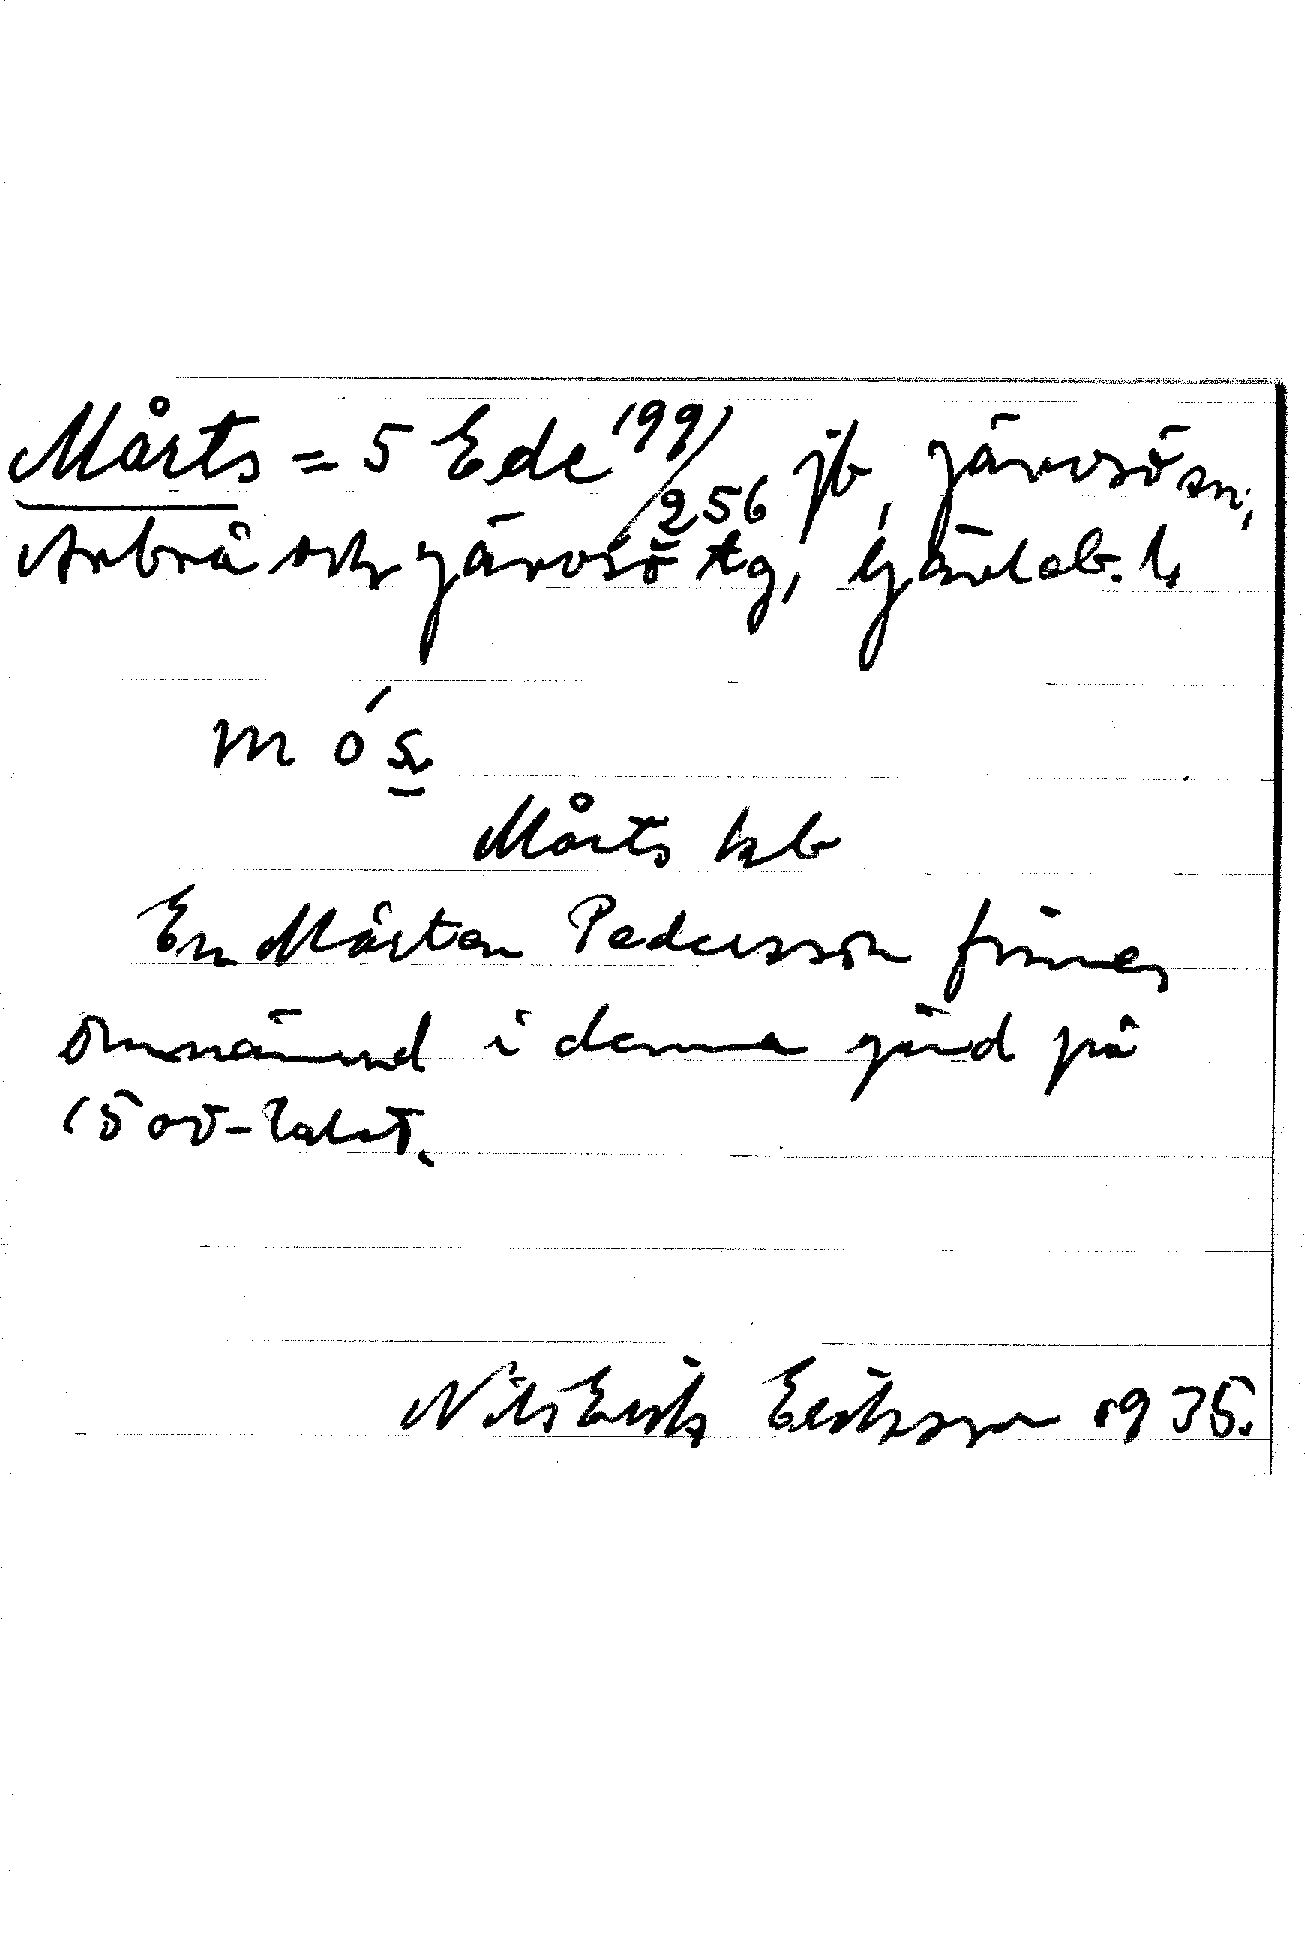 Mårts = 5 Ede 199/256 jb, Järvsö sn,
Arbrå och Järvsö tg, Gävleb. l.
mós
Mårts kb
En Mårten Pedersson finnes
omnämnd i denna gård på
1500-talet.
Nils Erik Eriksson 1935.